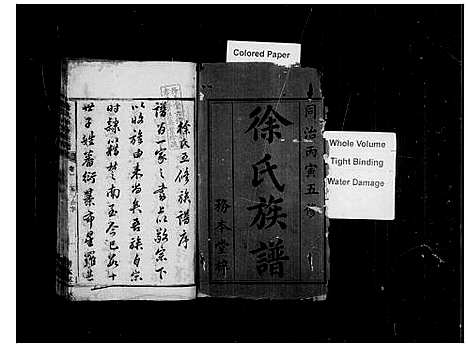 Colored Paper
Whole Volume
Tight Binding
Water Damage
同治丙寅五修
徐氏族譜
務本堂
徐氏五修族譜序
譜百一家之書上以敬宗下
以收族由來尚矣吾族自宗
時隸籍楚南至今已數十
世子姓蕃衍棊布星羅其